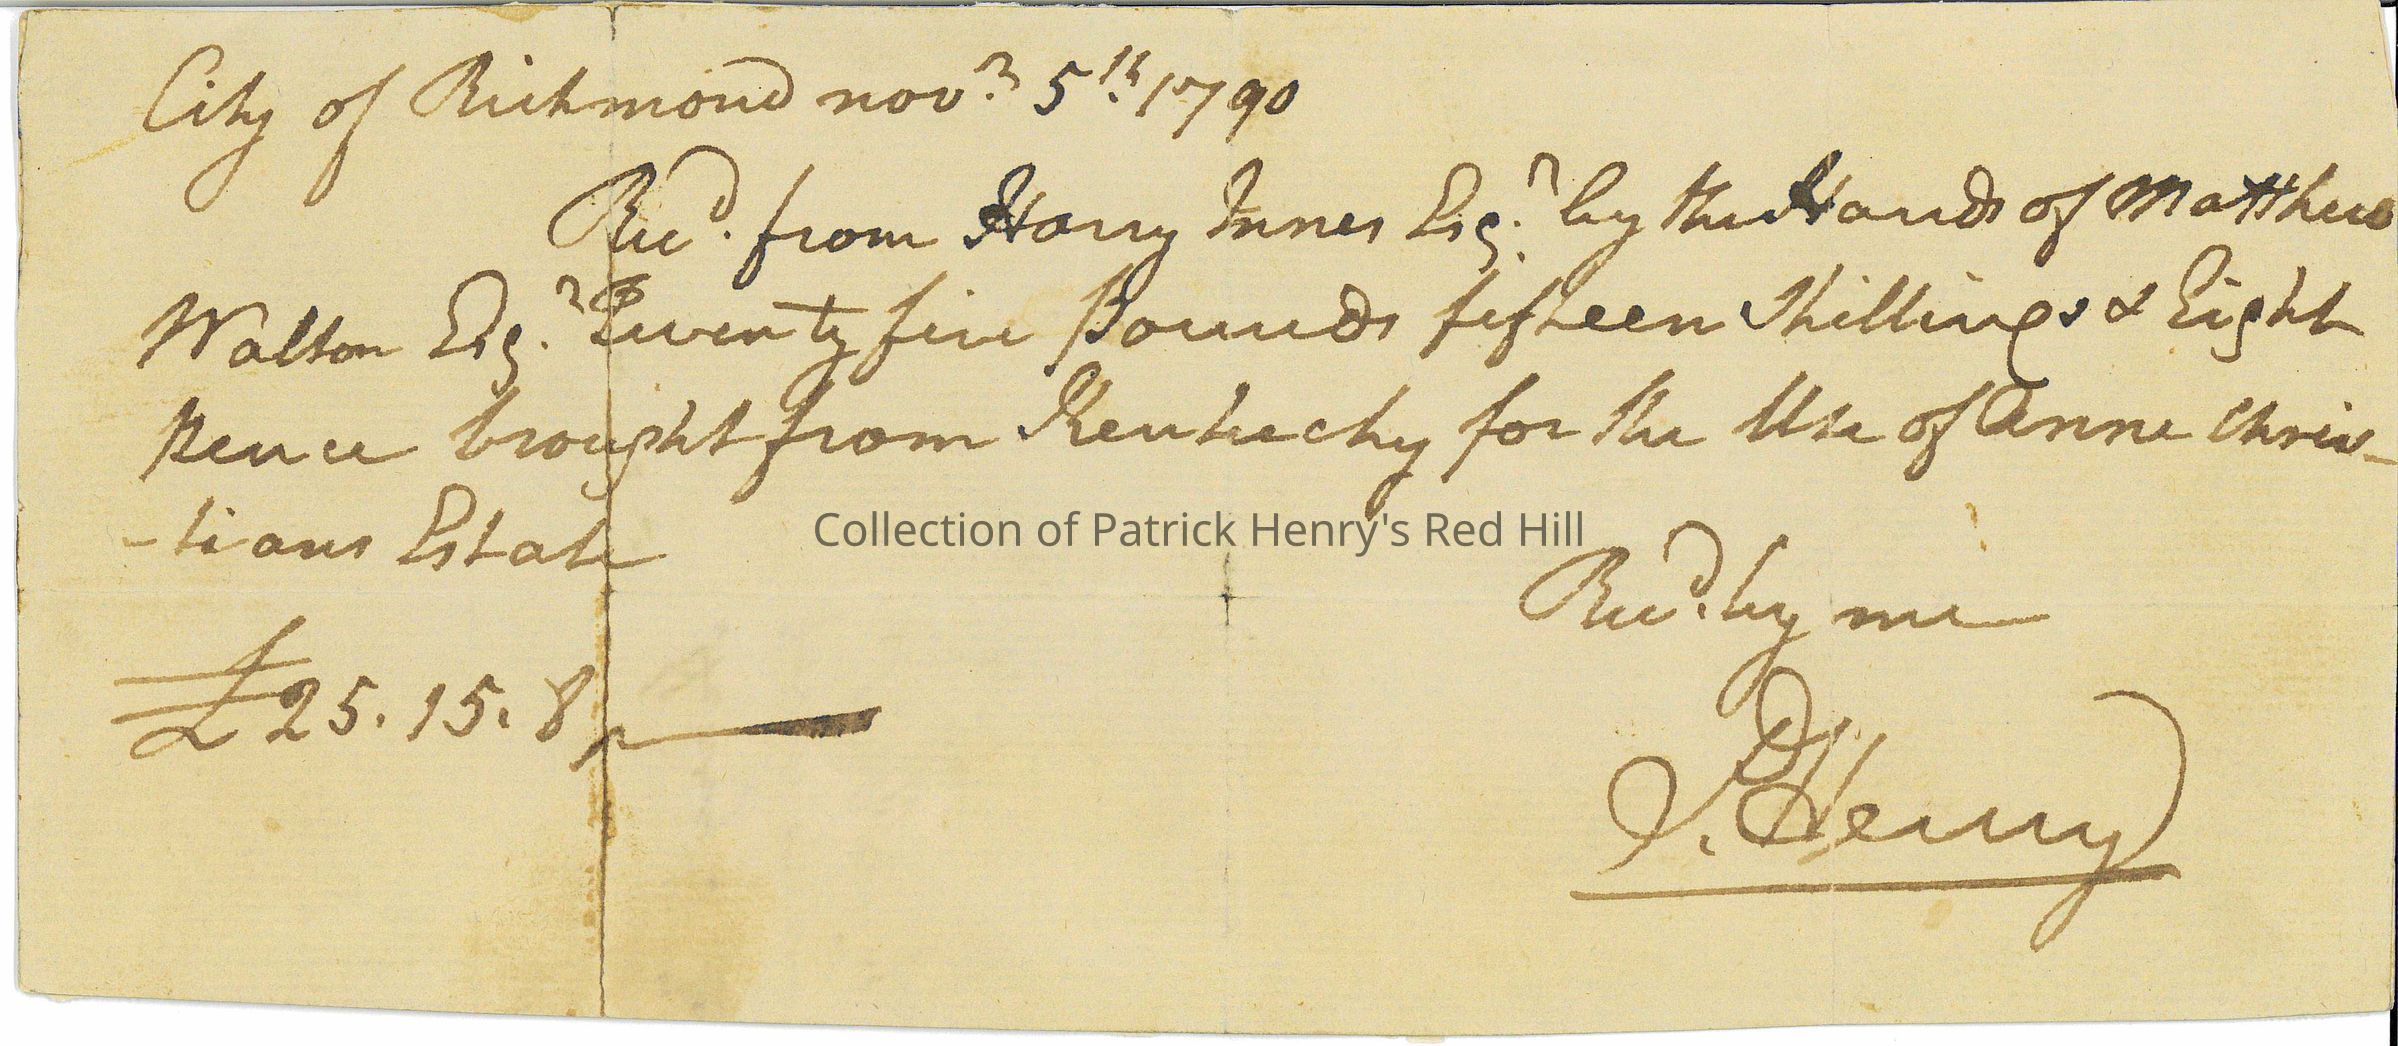 City of Richmond novr. 5th. 1790
Recd. from Harry Innes Esqr. by the Hands of Matthew
Walton Esqr. Twenty five Pounds fifteen Shillings & Eight
pence brought from Kentucky for the Use of Anne Chris-
-tians Estate
Collection of Patrick Henry's Red Hill
Recd. by me
£25.15.8
P. Henry